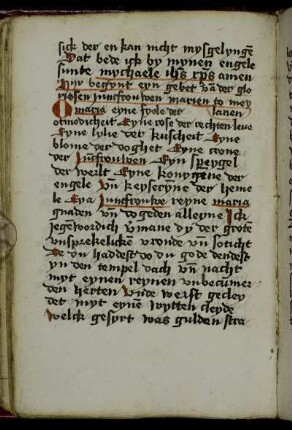 sick der en kan nicht mysgelynge
Dat bede ick by mynen engele
sunte mychaele ihs xps amen
Hir begynt eyn gebet van der glo
riosen iuncfrouwen marien to mey
O maria eyne sydle der lanen
otmodicheit Eyne rose der rechten leue
Eyne lylie der kuscheit Eyne
blome der doghet Eyne crone
der Juncfrouwen Eyn speygel
der werlt Eyne konygene der
engele vn keyseryne der heme
le Eya Juncfrouwe reyne maria
gnaden vn dogeden alleyne Ick
iegewordich vmane dy der grote
vnsprekelicke vroude vn soticht
De du haddest do du gode dendest
yn den tempel dach vn nacht
myt eynen reynen vnbecumer
den herten Vnde werst gecley
det myt eyne wytten cleyde
Welck gesyrt was gulden stra